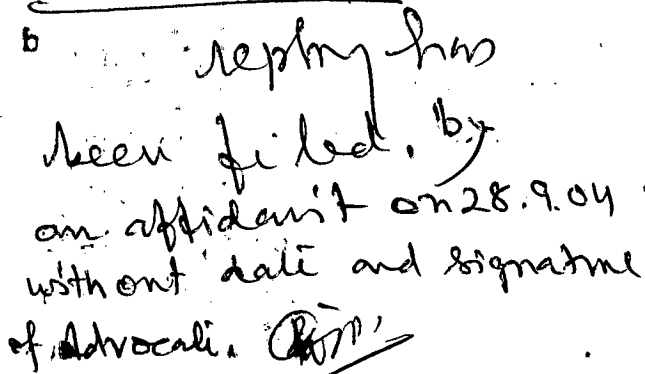 b
reply has
been filed, by
an affidavit on 28.9.04
without date and signature
of Advocate.